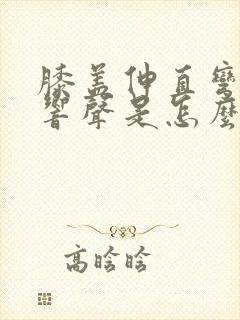 膝盖伸直弯
響聲是怎麼
高晗晗